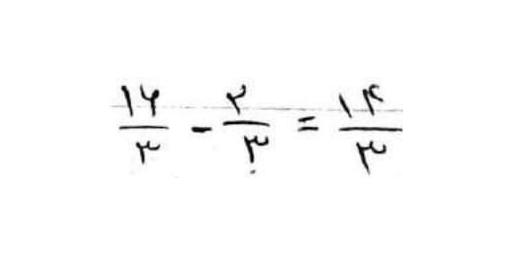 ۱۶/۳ - ۲/۳ = ۱۴/۳